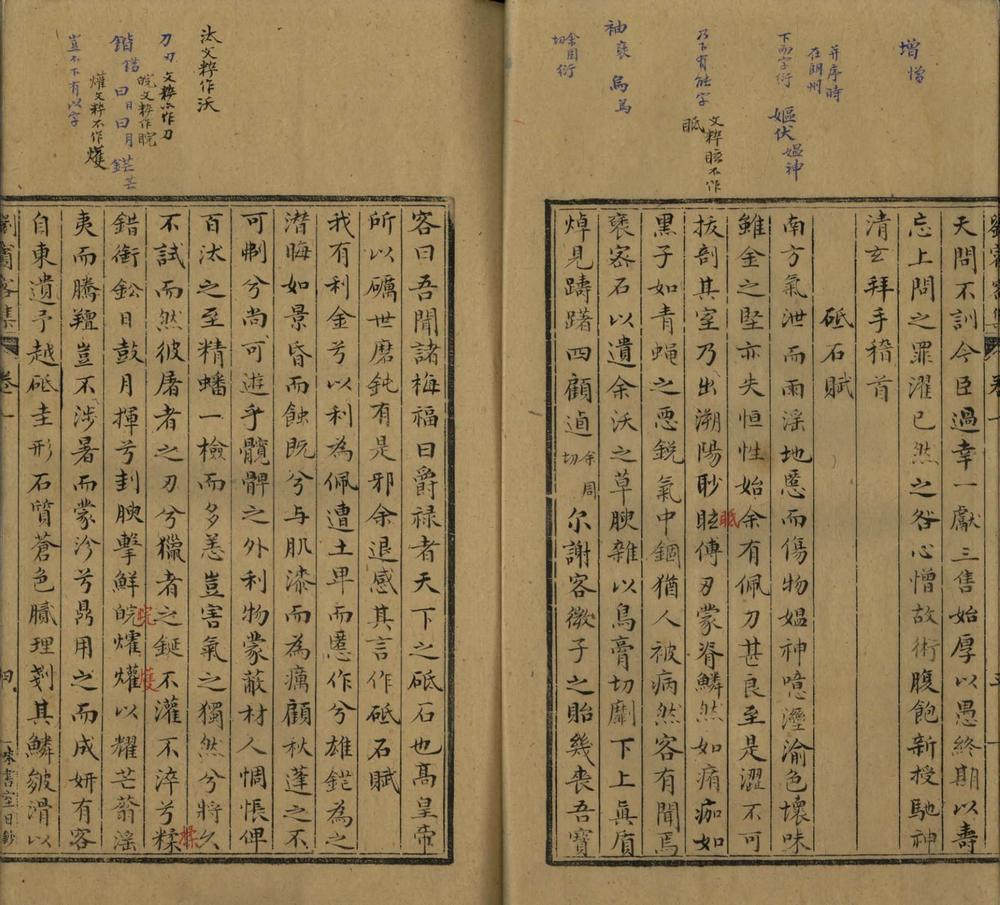 增憎
并序時
在朗州
下而字衍
嫗伏媼神
乃下有能字
文粹眩不作
眂
袖褒 烏焉
余周
切
衍
天問不訓今臣過幸一獻三售始厚以愚終期以壽
忘上問之罪濯已然之咎心憎故術腹飽新授馳神
清玄拜手稽首
砥石賦
南方氣泄而雨淫地慝而傷物媼神噫溼渝色壞味
雖金之堅亦失恒性始余有佩刀甚良至是澀不可
拔剖其室乃出溯陽眇眩傅刃蒙脊鱗然如痏痂如
黑子如青蝇之惡銳氣中錮猶人被病然客有聞焉
褒密石以遺余沃之草腴雜以鳥膏切劘下上眞質
焯見躊躇四顧逌
余周
切
尔謝客微子之貽幾喪吾寶
汰文粹作沃
刀刃文粹亦作刀
皖文粹作睆
錯 曰日日月 鋩芒
爟文粹不作爟
豈不下有以字
客曰吾聞諸梅福曰爵禄者天下之砥石也高皇帝
所以礪世磨鈍有是邪余退感其言作砥石賦
我有利金兮以利為佩遭土卑而慝作兮雄鋩為之
潛晦如景昏而蝕既兮与肌漆而為癘顧秋蓬之不
可剸兮尚可遊乎髖髀之外利物蒙蔽材人惆悵俾
百汰之至精蟠一檢而多恙豈害氣之獨然兮將久
不試而然彼屠者之刃兮獵者之鋋不灌不淬兮糅
錯衝鈆日鼓月揮兮刲腴擊鮮皖爟爟以耀芒蓊淫
夷而騰羶豈不涉暑而蒙沴兮曷用之而成妍有客
自東遺予越砥圭形石質蒼色膩理剗其鱗皴滑以
劉賓客集
卷一
四